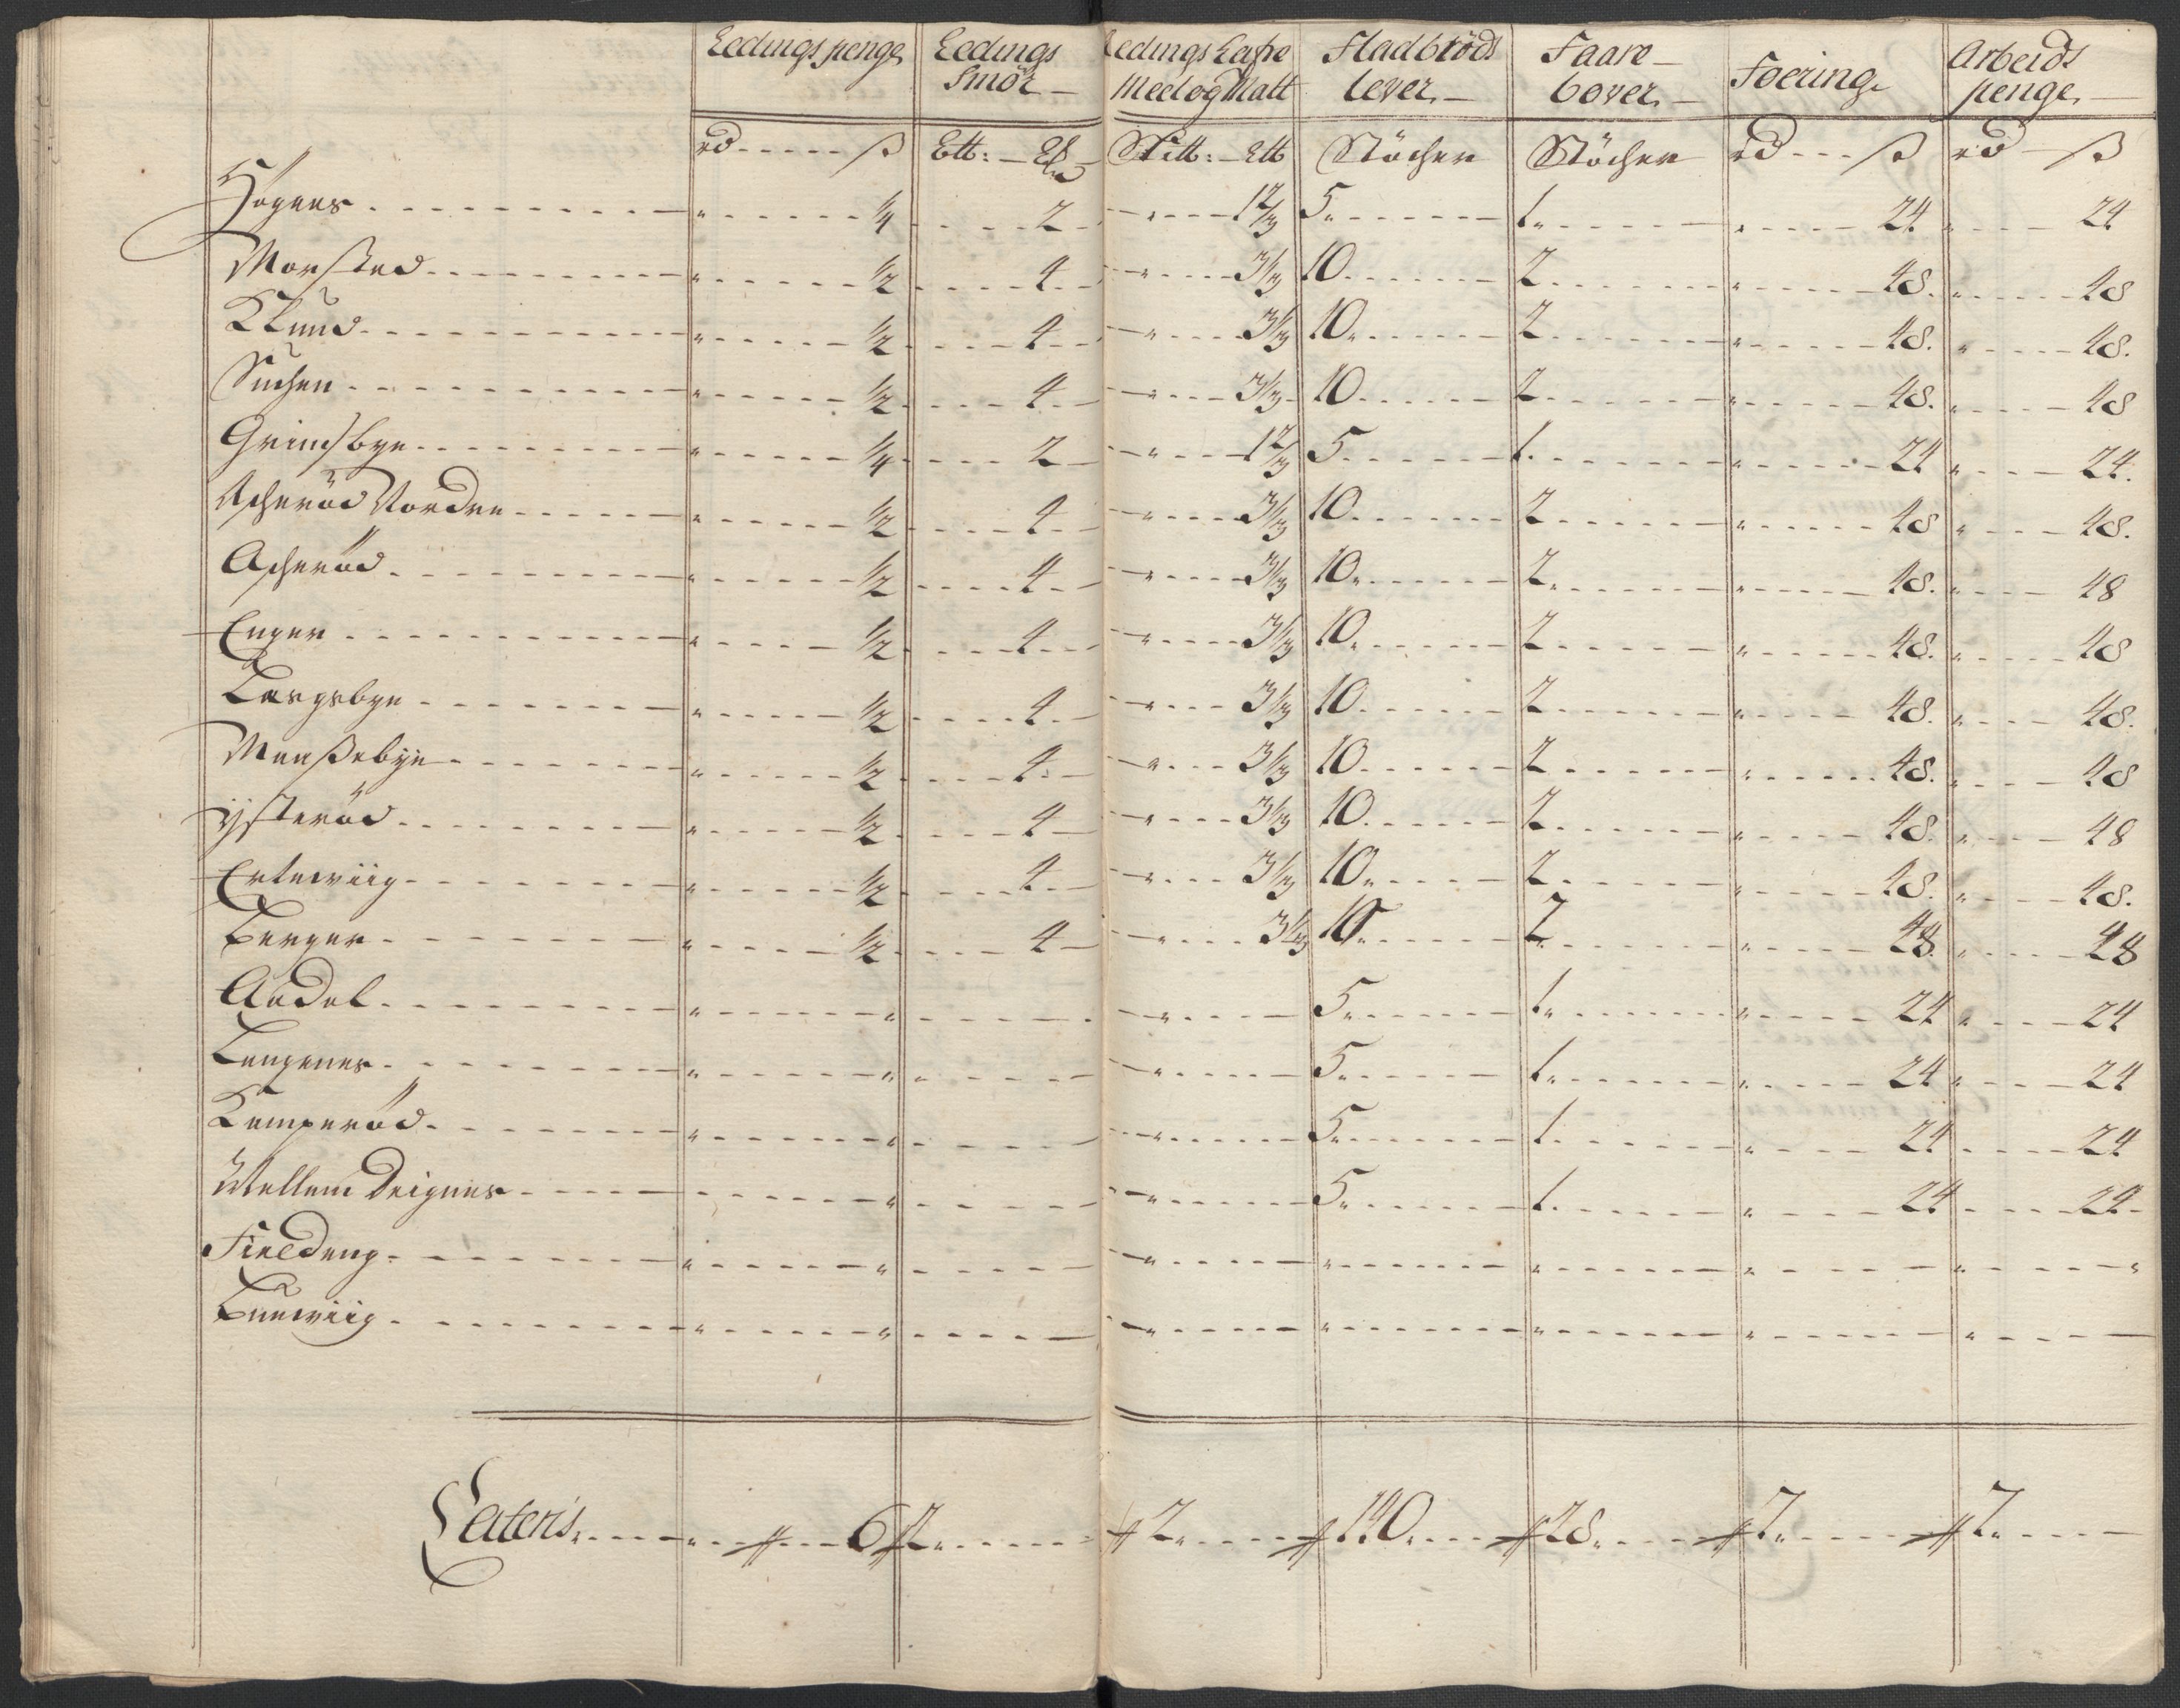 Ledings penge | Ledings Smör | Ledings Lafre Meel og Malt | Fladbröds lever | Faare bover | Foering | Arbeids penge
rd ß | Stöcher | Stöcher | rd ß | rd ß
Högnes " 1/4 | 2 | " | 5 | 1 | " 24 | " 24
Morsted " 1/2 | 4 | " 3 1/3 | 10 | 2 | " 48 | " 48
Klund " 1/2 | 4 | " 3 1/3 | 10 | 2 | " 48 | " 48
Suchen " 1/2 | 4 | " 3 1/3 | 10 | 2 | " 48 | " 48
Grimsbye " 1/4 | 2 | " | 5 | 1 | " 24 | " 24
Acheröd Nordre " 1/2 | 4 | " 3 1/3 | 10 | 2 | " 48 | " 48
Acheröd " 1/2 | 4 | " 3 1/3 | 10 | 2 | " 48 | " 48
Enger " 1/2 | 4 | " 3 1/3 | 10 | 2 | " 48 | " 48
" 1/2 | 4 | " 3 1/3 | 10 | 2 | " 48 | " 48
Monßebye " 1/2 | 4 | " 3 1/3 | 10 | 2 | " 48 | " 48
Ysteröd " 1/2 | 4 | " 3 1/3 | 10 | 2 | " 48 | " 48
Ertewiig " 1/2 | 4 | " 3 1/3 | 10 | 2 | " 48 | " 48
Berger " 1/2 | 4 | " 3 1/3 | 10 | 2 | " 48 | " 48
Aadal " " | " | 5 | 1 | " 24 | " 24
Langenes " " | " | " | 5 | 1 | " 24 | " 24
Kamperöd " " | " | 5 | 1 | " 24 | 24
Mellem Deignes " | " | 5 | 1 | " 24 | 24
Fieldeng " " | " | " | " | " | " "
Buerwiig " " | " | " | " | " | "
Lateris 6 | 2 | 2 | 140 | 28 | 7 | 7